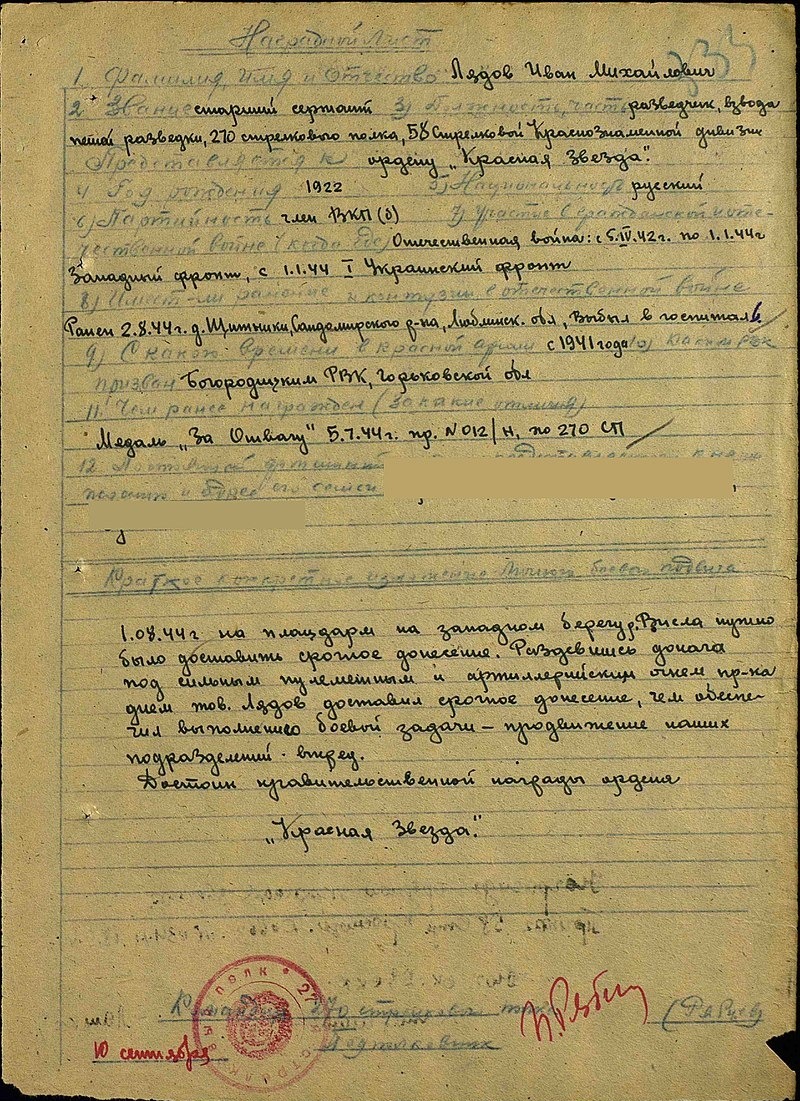 Наградной Лист
1. Фамилия, имя и Отчество Лядов Иван Михайлович
2 Звание старший сержант 3) Должность, часть разведчик, взвода
пешей разведки, 270 стрелкового полка, 58 Стрелковой Краснознаменной дивизии
Представляется к ордену „Красная Звезда".
4 Год рождения 1922 5) Национальность русский
6) Партийность член ВКП(б) 7) Участие в гражданской и оте-
чественной войне (когда где) Отечественная война: с 5.IV.42г. по 1.1.44г
Западный фронт, с 1.1.44 I Украинский фронт
8) Имеет-ли ранение и контузии в отечественной войне
Ранен 2.8.44г. д. Щитники, Сандомирского р-на, Люблинск. обл, Выбыл в госпиталь
9) С какого времени в красной армии с 1941 года 10) Каким РВК
призван Богородицким РВК, Горьковской обл
11 Чем ранее награжден (за какие отличия)
Медаль „За Отвагу" 5.7.44г. пр. N 012/н, по 270 СП
12
и его семьи
Краткое конкретное изложение личного боевого подвига
1.08.44г на плацдарм на западном берегу р. Висла нужно
было доставить срочное донесение. Раздевшись донага
под сильным пулеметным и артиллерийским огнем пр-ка
днем тов. Лядов доставил срочное донесение, чем обеспе-
чил выполнению боевой задачи – продвижение наших
подразделений вперед.
Достоин правительственной награды ордена
„Красная Звезда".
Командир 270 стрелков полка
Подполковник
10 сентября